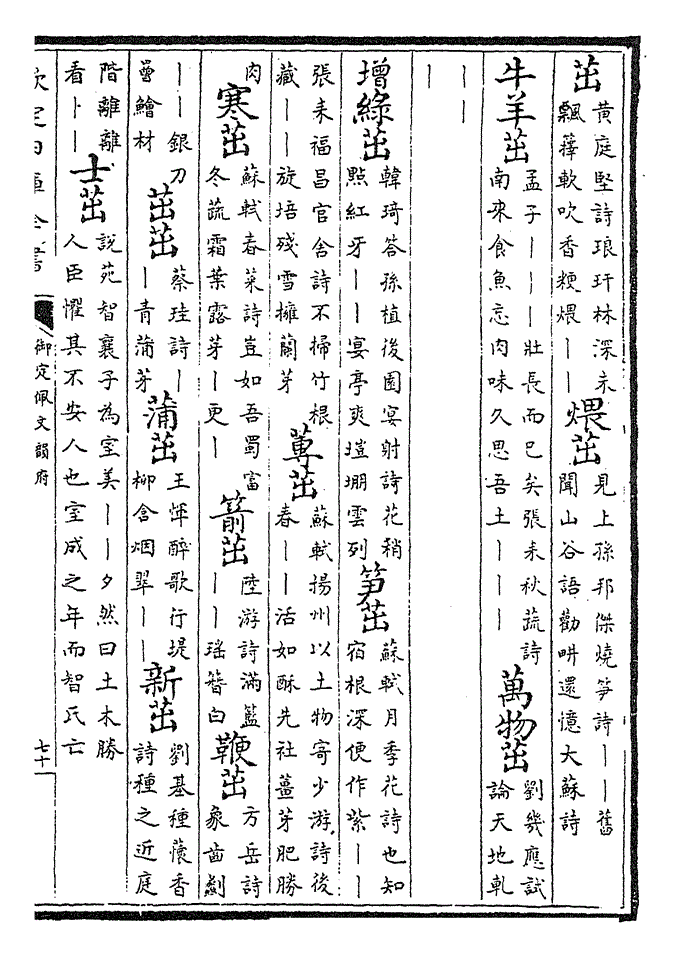 茁
黄庭堅詩琅玕林深未
飄籜軟吹香粳煨｜｜
煨茁
見上孫邦傑燒笋詩｜｜舊
聞山谷語勸畊還憶大蘇詩
牛羊茁
孟子｜｜｜壯長而已矣張耒秋蔬詩
南來食魚忘肉味久思吾土｜｜｜
萬物茁
劉幾應試
論天地軋
｜｜
｜
增緑茁
韓琦答孫植後園宴射詩花稍
點紅牙｜｜宴亭爽塏堋雲列
笋茁
蘇軾月季花詩也知
宿根深便作紫｜｜
張耒福昌官舍詩不掃竹根
藏｜｜旋培殘雪擁蘭芽
蓴茁
蘇軾揚州以土物寄少游詩後
春｜｜活如酥先社薑芽肥勝
肉
寒茁
蘇軾春菜詩豈如吾蜀富
冬蔬霜葉露芽｜更｜
箭茁
陸游詩滿籃
｜｜瑤簪白
鞭茁
方岳詩
象齒劙
｜｜銀刀
疊鱠材
茁茁
蔡珪詩｜
｜青蒲芽
蒲茁
王惲醉歌行堤
柳含烟翠｜｜
新茁
劉基種蘹香
詩種之近庭
階離離
看｜｜
士茁
說苑智襄子為室美｜｜夕然曰土木勝
人臣懼其不安人也室成之年而智氏亡
欽定四庫全書
御定佩文韻府
七十一